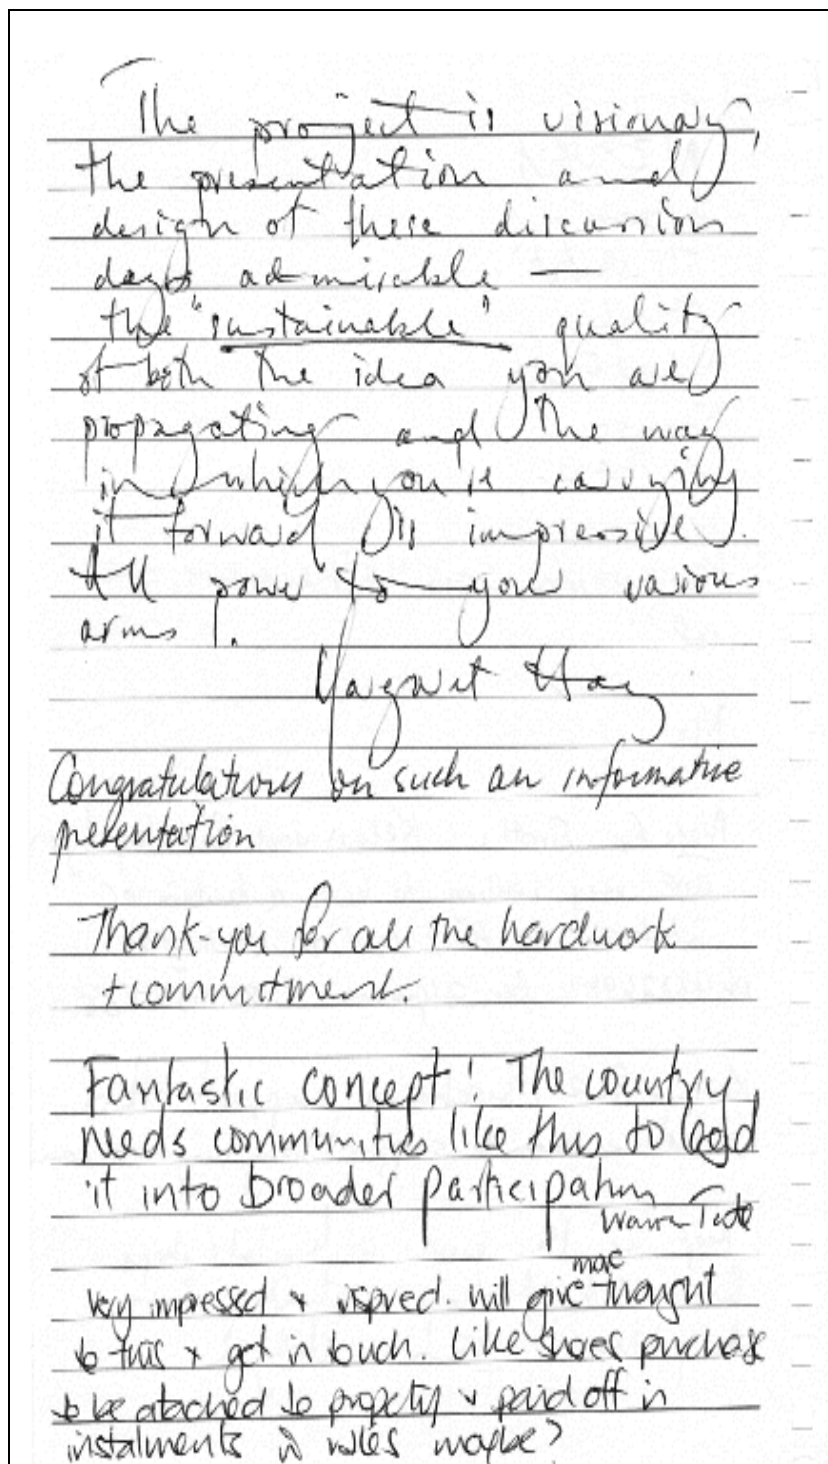 The project is visionary,
the presentation and
design of these discussion
days admirable —
the "sustainable" quality
of both the idea you are
propagating and the way
in which you're carrying
it forward is impressive.
All power to your various
arms!
Margaret Hay
Congratulations on such an informative
presentation
Thank-you for all the hardwork
+ commitment.
Fantastic concept! The country
needs communities like this to lead
it into broader participation
Warren Tate
more
Very impressed & inspired. Will give thought
to this & get in touch. Like shares purchase
to be attached to property & paid off in
instalments in rates maybe?